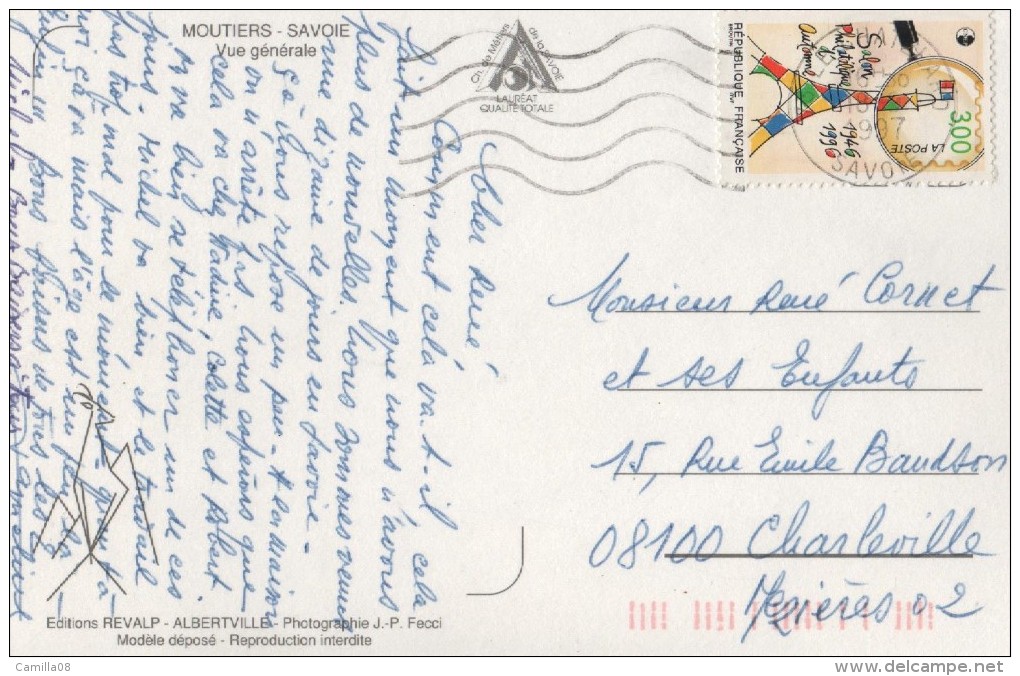 MOUTIERS - SAVOIE
Vue générale
Ch. de Métiers
de la SAVOIE
LAURÉAT
QUALITÉ TOTALE
RÉPUBLIQUE FRANÇAISE
Salon
Philatélique
d'
Automne
1946
1996
3,00
LA POSTE
1997
SAVOIE
Cher René
Comment cela va-t-il cela
fait un moment que nous n'avons
plus de nouvelles. Nous sommes venus
une dizaine de jours en Savoie -
ça nous repose un peu - à la maison
on arrête pas, nous espérons que
cela va chez Nadine, Colette et Albert
on va bien se téléphoner un de ces
jours Michel va bien et le travail
pas trop mal pour le moment - quant à
moi çà va mais l'âge est un peu là -
Bons baisers de tous les
Bons Baisers à tous
Monsieur René Cornet
et ses Enfants
15, Rue Emile Baudson
08100 Charleville
Mézières 02
Editions REVALP - ALBERTVILLE - Photographie J.-P. Fecci
Modèle déposé - Reproduction interdite
Camilla08
www.delcampe.net